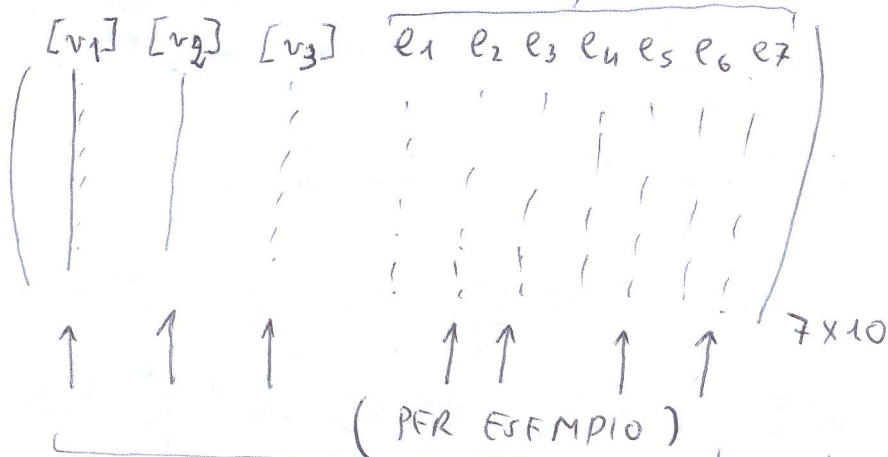 [v1] [v2] [v3] e1 e2 e3 e4 e5 e6 e7
7x10
(PER ESEMPIO)